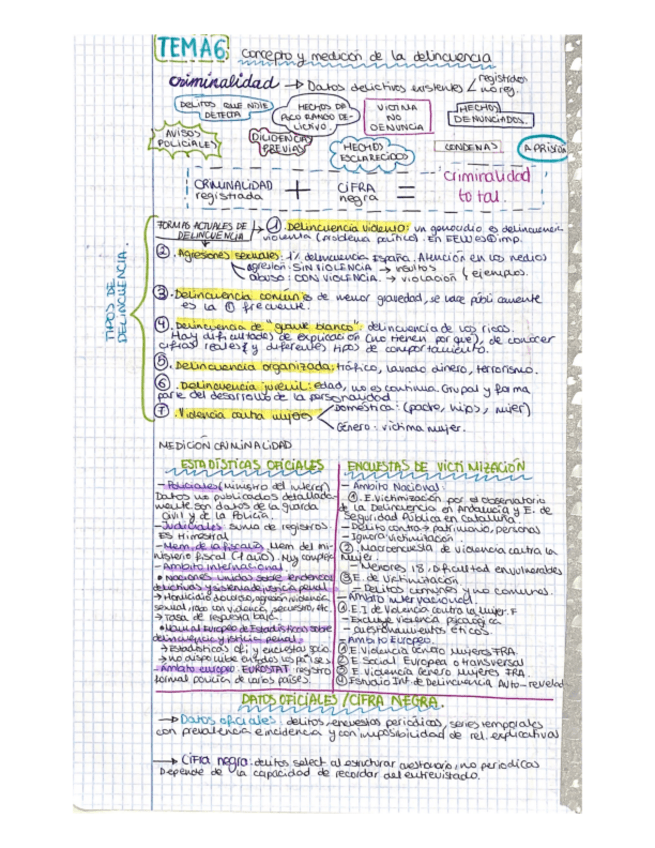 TEMA6: Concepto y medición de la delincuencia
criminalidad → Datos delictivos existentes < registrados
no reg.
DELITOS QUE NADIE DETECTA
HECHOS DE POCO RANGO DELICTIVO
VICTIMA NO DENUNCIA
HECHOS DENUNCIADOS.
AVISOS POLICIALES
DILIGENCIAS PREVIAS
HECHOS ESCLARECIDOS
CONDENAS
A PRISIÓN
CRIMINALIDAD registrada + CIFRA negra = criminalidad total.
TIPOS DE DELINCUENCIA.
FORMAS ACTUALES DE DELINCUENCIA → ① Delincuencia violenta: un genocidio es delincuencia
violenta (problema político). En EEUU es imp.
② Agresiones sexuales: 1% delincuencia España. Atención en los medios
agresión: SIN VIOLENCIA → insultos
abuso: CON VIOLENCIA → violación } ejemplos.
③ Delincuencia común: es de menor gravedad, se hace públicamente
es la + frecuente.
④ Delincuencia de "guante blanco": delincuencia de los ricos.
Hay dificultades de explicación (no tienen por que), de conocer
cifras reales y diferentes tipos de comportamiento.
⑤ Delincuencia organizada: tráfico, lavado dinero, terrorismo.
⑥ Delincuencia juvenil: edad, no es continua. Grupal y forma
parte del desarrollo de la personalidad
⑦ Violencia contra mujeres < Doméstica: (padre, hijos, mujer)
Género: victima mujer.
MEDICIÓN CRIMINALIDAD
ESTADÍSTICAS OFICIALES
- Policiales (ministro del interior)
Datos no publicados detalladamente
son datos de la guardia
Civil y de la Policia.
- Judiciales suma de registros.
Es trimestral
- Mem. de la fiscalía. Mem del ministerio
fiscal (1 año). Muy complejo
- Ambito internacional
• Naciones Unidas sobre tendencias
delictivas y sistema de justicia penal
→ Homicidio doloroso, agresión, violencia
sexual, robo con violencia, secuestro, etc.
→ Tasa de respuesta baja.
• Manual Europeo de Estadísticas sobre
delincuencia y justicia penal:
→ Estadísticas ofi y encuestas
→ no disponible en todos los países
- Ambito europeo. EUROSTAT registro
formal policia de varios países.
ENCUESTAS DE VICTIMIZACIÓN
- Ambito Nacional:
① E. Victimización por el observatorio
de la Delincuencia en Andalucía y E. de
Seguridad Pública en Cataluña
- Delito contra patrimonio, personas
- Ignora victimización.
② Macroencuesta de violencia contra la
mujer.
- Menores 18, dificultad en vulnerables
③ E. de Victimización.
- Delitos comunes y no comunes.
- Ambito internacional.
① E.I de Violencia contra la mujer. F
- Excluye violencia psicologica
- cuestionamientos éticos.
- Ambito Europeo
① E Violencia Género Mujeres FRA.
② E. Social Europea o transversal
③ E. Violencia Género Mujeres FRA.
④ Estudio Int. de Delincuencia Auto-revelada
DATOS OFICIALES / CIFRA NEGRA.
→ Datos oficiales delitos, encuestas periódicas, series temporales
con prevalencia e incidencia y con imposibilidad de rel. explicativas
→ Cifra negra: delitos select al estructurar cuestionario, no periodicas
Depende de la capacidad de recordar del entrevistado.